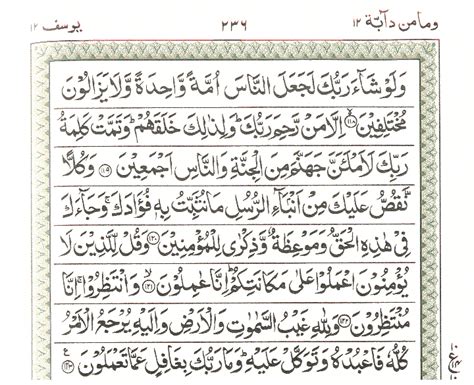 وما من دآبة ١٢ ٢٣٦ يوسف ١٢
وَلَوْ شَآءَ رَبُّكَ لَجَعَلَ النَّاسَ اُمَّةً وَّاحِدَةً وَّلَا يَزَالُوْنَ
مُخْتَلِفِيْنَ ﴿١١٨﴾ اِلَّا مَنْ رَّحِمَ رَبُّكَ ؕ وَلِذٰلِكَ خَلَقَهُمْ ؕ وَتَمَّتْ كَلِمَةُ
رَبِّكَ لَاَمْلَئَنَّ جَهَنَّمَ مِنَ الْجِنَّةِ وَالنَّاسِ اَجْمَعِيْنَ ﴿١١٩﴾ وَكُلًّا
نَّقُصُّ عَلَيْكَ مِنْ اَنْۢبَآءِ الرُّسُلِ مَا نُثَبِّتُ بِهٖ فُؤَادَكَ ۚ وَجَآءَكَ
فِيْ هٰذِهِ الْحَقُّ وَمَوْعِظَةٌ وَّذِكْرٰى لِلْمُؤْمِنِيْنَ ﴿١٢٠﴾ وَقُلْ لِّلَّذِيْنَ لَا
يُؤْمِنُوْنَ اعْمَلُوْا عَلٰى مَكَانَتِكُمْ ؕ اِنَّا عٰمِلُوْنَ ﴿١٢١﴾ وَانْتَظِرُوْا ۚ اِنَّا
مُنْتَظِرُوْنَ ﴿١٢٢﴾ وَلِلّٰهِ غَيْبُ السَّمٰوٰتِ وَالْاَرْضِ وَاِلَيْهِ يُرْجَعُ الْاَمْرُ
كُلُّهٗ فَاعْبُدْهُ وَتَوَكَّلْ عَلَيْهِ ؕ وَمَا رَبُّكَ بِغَافِلٍ عَمَّا تَعْمَلُوْنَ ﴿١٢٣﴾